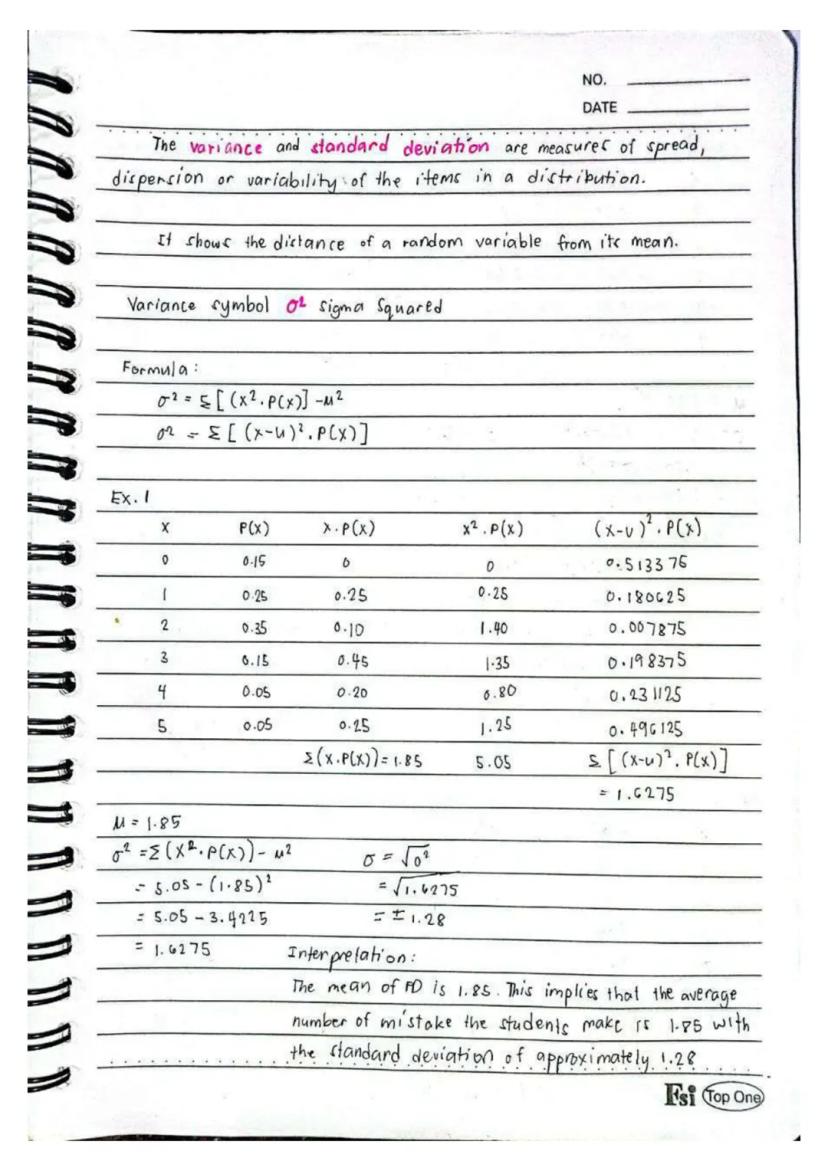 NO.
DATE
The variance and standard deviation are measures of spread,
dispersion or variability of the items in a distribution.
It shows the distance of a random variable from its mean.
Variance symbol σ² sigma squared
Formula:
σ² = Σ[(x².P(x)] -μ²
σ² = Σ[(x-u)².P(x)]
Ex. 1
X P(x) X.P(x) x².P(x) (x-u)².P(x)
0 0.15 0 0 0.513375
1 0.25 0.25 0.25 0.180625
2 0.35 0.10 1.40 0.007875
3 0.15 0.45 1.35 0.198375
4 0.05 0.20 0.80 0.231125
5 0.05 0.25 1.25 0.496125
Σ(x.P(x)) = 1.85 5.05 Σ[(x-u)².P(x)]
= 1.6275
μ = 1.85
σ² = Σ(X².P(x)) - μ² σ = √σ²
= 5.05 - (1.85)² = √1.6275
= 5.05 - 3.4225 = ± 1.28
= 1.6275 Interpretation:
The mean of PD is 1.85. This implies that the average
number of mistake the students make is 1.85 with
the standard deviation of approximately 1.28
Fsi Top One